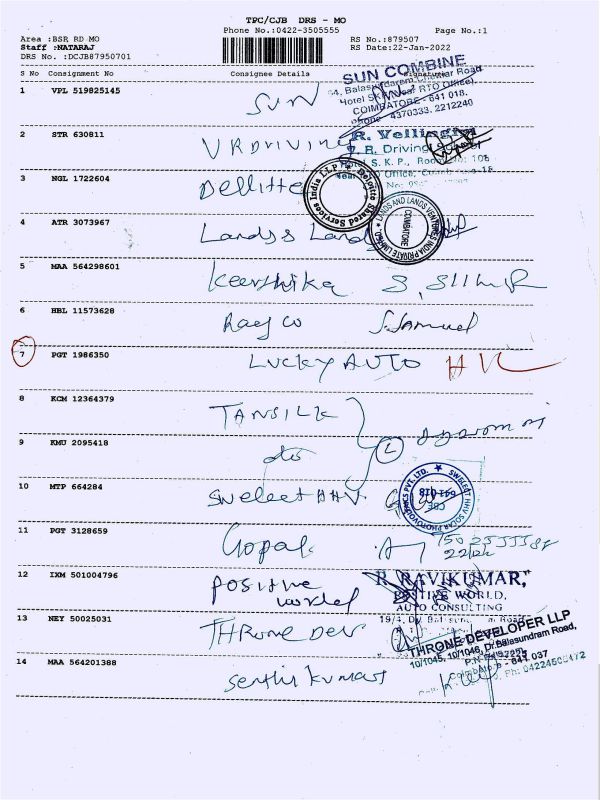 TPC/CJB DRS - MO
Phone No.:0422-3505555 Page No.:1
Area :BSR RD MO RS No.:879507
Staff :NATARAJ RS Date:22-Jan-2022
DRS No. :DCJB87950701
S No Consignment No Consignee Details Signature
1 VPL 519825145 SUN
SUN COMBINE
64, Balasundaram Chettiar Road
Hotel SKP (Near RTO Office)
COIMBATORE - 641 018.
Phone : 4370333, 2212240
2 STR 630811 V R DRIVING
R. Vellingiri
V. R. Driving School
Hotel S. K. P., Room No: 108
Near RTO Office, Coimbatore-18
3 NGL 1722604 Dellitte
Deloitte Shared Services India LLP
4 ATR 3073967 Lands & Lands
LANDS AND LANDS VENTURES INDIA PRIVATE LIMITED
COIMBATORE
5 MAA 564298601 Keerthika S.
6 HBL 11573628 Raey co S. Samuel
7 PGT 1986350 LUCKY AUTO
8 KCM 12364379 TANSILK
9 KMU 2095418 do
10 MTP 664284 Sweleet HHV
SWELECT HHV SOLAR PHOTOVOLTAICS PVT. LTD.
CBE
641 018
11 PGT 3128659 Gopal
22/1/22
12 IXM 501004796 Positive
world
R. RAVIKUMAR,
POSITIVE WORLD,
AUTO CONSULTING
13 NEY 50025031 THRone Dev
THRONE DEVELOPER LLP
10/1045, 10/1046, Dr.Balasundram Road,
Coimbatore - 641 037
14 MAA 564201388 Senthil kumar